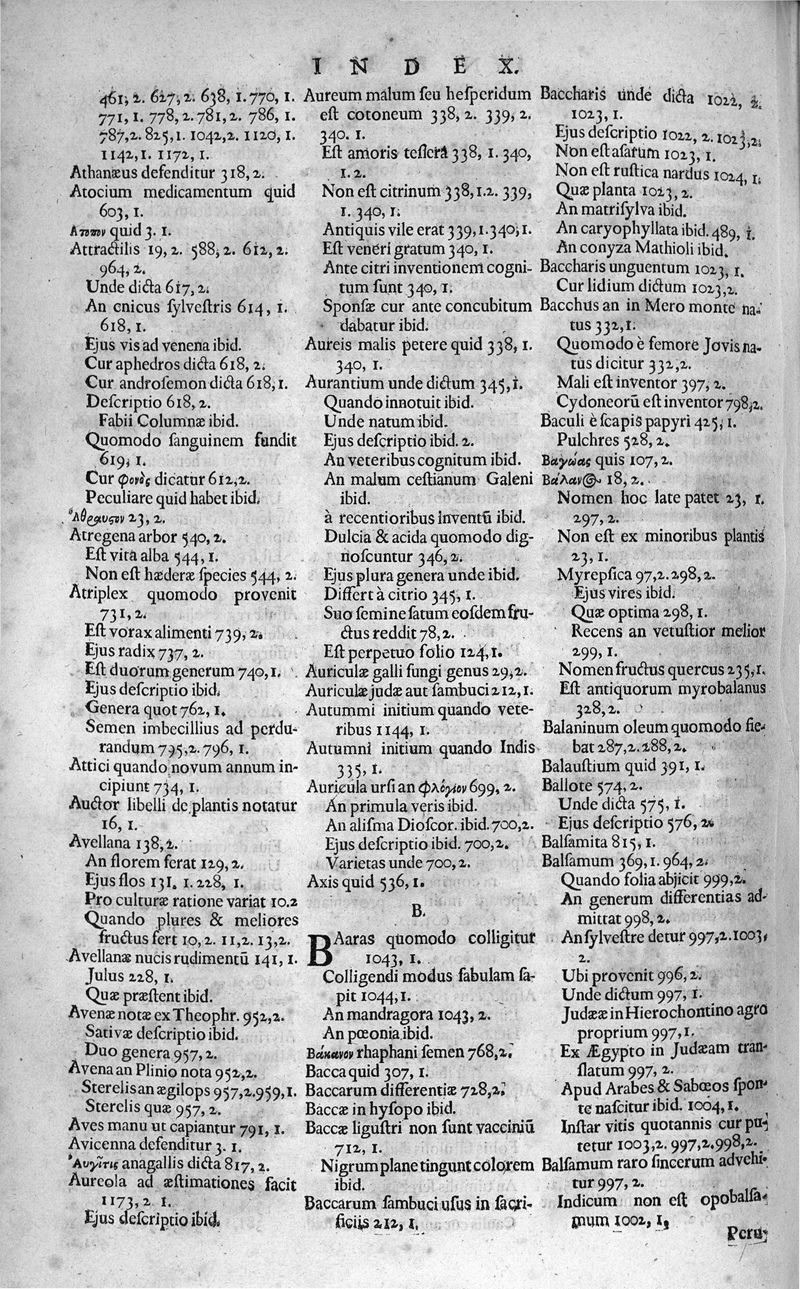 INDEX.
461, 2. 627, 2. 638, 1. 770, 1.
771, 1. 778, 2. 781, 2. 786, 1.
787, 2. 825, 1. 1042, 2. 1120, 1.
1142, 1. 1172, 1.
Athanæus defenditur 318, 2.
Atocium medicamentum quid
603, 1.
Ατοπον quid 3. 1.
Attractilis 19, 2. 588, 2. 612, 2.
964, 2.
Unde dicta 617, 2.
An cnicus ſylveſtris 614, 1.
618, 1.
Ejus vis ad venena ibid.
Cur aphedros dicta 618, 2.
Cur androſemon dicta 618, 1.
Deſcriptio 618, 2.
Fabii Columnæ ibid.
Quomodo ſanguinem fundit
619, 1.
Cur φονὸς dicatur 612, 2.
Peculiare quid habet ibid.
23, 2.
Atregena arbor 540, 2.
Eſt vita alba 544, 1.
Non eſt hæderæ ſpecies 544, 2.
Atriplex quomodo provenit
731, 2.
Eſt vorax alimenti 739, 2.
Ejus radix 737, 2.
Eſt duorum generum 740, 1.
Ejus deſcriptio ibid.
Genera quot 762, 1.
Semen imbecillius ad perdu-
randum 795, 2. 796, 1.
Attici quando novum annum in-
cipiunt 734, 1.
Auctor libelli de plantis notatur
16, 1.
Avellana 138, 2.
An florem ferat 129, 2.
Ejus flos 131. 1. 228, 1.
Pro culturæ ratione variat 10.2
Quando plures & meliores
fructus fert 10, 2. 11, 2. 13, 2.
Avellanæ nucis rudimentū 141, 1.
Julus 228, 1.
Quæ præſtent ibid.
Avenæ notæ ex Theophr. 952, 2.
Sativæ deſcriptio ibid.
Duo genera 957, 2.
Avena an Plinio nota 952, 2.
Sterelis an ægilops 957, 2. 959, 1.
Sterelis quæ 957, 2.
Aves manu ut capiantur 791, 1.
Avicenna defenditur 3. 1.
anagallis dicta 817, 2.
Aureola ad æſtimationes facit
1173, 2 1.
Ejus deſcriptio ibid.
Aureum malum ſeu heſperidum
eſt cotoneum 338, 2. 339, 2.
340. 1.
Eſt amoris teſſera 338, 1. 340,
1. 2.
Non eſt citrinum 338, 1.2. 339,
1. 340, 1.
Antiquis vile erat 339, 1. 340, 1.
Eſt veneri gratum 340, 1.
Ante citri inventionem cogni-
tum ſunt 340, 1.
Sponſæ cur ante concubitum
dabatur ibid.
Aureis malis petere quid 338, 1.
340, 1.
Aurantium unde dictum 345, 1.
Quando innotuit ibid.
Unde natum ibid.
Ejus deſcriptio ibid. 2.
An veteribus cognitum ibid.
An malum ceſtianum Galeni
ibid.
à recentioribus inventū ibid.
Dulcia & acida quomodo dig-
noſcuntur 346, 2.
Ejus plura genera unde ibid.
Differt à citrio 345, 1.
Suo ſemine ſatum eoſdem fru-
ctus reddit 78, 2.
Eſt perpetuo folio 124, 1.
Auriculæ galli fungi genus 29, 2.
Auriculæ judæ aut ſambuci 212, 1.
Autummi initium quando vete-
ribus 1144, 1.
Autumni initium quando Indis
335, 1.
Auricula urſi an φλόγιον 699, 2.
An primula veris ibid.
An aliſma Dioſcor. ibid. 700, 2.
Ejus deſcriptio ibid. 700, 2.
Varietas unde 700, 2.
Axis quid 536, 1.
B.
BAaras quomodo colligitur
1043, 1.
Colligendi modus fabulam ſa-
pit 1044, 1.
An mandragora 1043, 2.
An pœonia ibid.
Βάκανον rhaphani ſemen 768, 2.
Bacca quid 307, 1.
Baccarum differentiæ 728, 2.
Baccæ in hyſopo ibid.
Baccæ liguſtri non ſunt vacciniū
712, 1.
Nigrum plane tingunt colorem
ibid.
Baccarum ſambuci uſus in ſacri-
ficiis 212, 1.
Baccharis unde dicta 1022, 2.
1023, 1.
Ejus deſcriptio 1022, 2. 1023, 2.
Non eſt aſarum 1023, 1.
Non eſt ruſtica nardus 1024, 1.
Quæ planta 1023, 2.
An matriſylva ibid.
An caryophyllata ibid. 489, 1.
An conyza Mathioli ibid.
Baccharis unguentum 1023, 1.
Cur lidium dictum 1023, 2.
Bacchus an in Mero monte na-
tus 332, 1.
Quomodo è femore Jovis na-
tus dicitur 332, 2.
Mali eſt inventor 397, 2.
Cydoneorū eſt inventor 798, 2.
Baculi è ſcapis papyri 425, 1.
Pulchres 528, 2.
Βαγώας quis 107, 2.
Βάλαν 18, 2.
Nomen hoc late patet 23, 1.
297, 2.
Non eſt ex minoribus plantis
23, 1.
Myrepſica 97, 2. 298, 2.
Ejus vires ibid.
Quæ optima 298, 1.
Recens an vetuſtior melior
299, 1.
Nomen fructus quercus 235, 1.
Eſt antiquorum myrobalanus
328, 2.
Balaninum oleum quomodo fie-
bat 287, 2. 288, 2.
Balauſtium quid 391, 1.
Ballote 574, 2.
Unde dicta 575, 1.
Ejus deſcriptio 576, 2.
Balſamita 815, 1.
Balſamum 369, 1. 964, 2.
Quando folia abjicit 999, 2.
An generum differentias ad-
mittat 998, 2.
An ſylveſtre detur 997, 2. 1003,
2.
Ubi provenit 996, 2.
Unde dictum 997, 1.
Judææ in Hierochontino agro
proprium 997, 1.
Ex Ægypto in Judæam tran-
ſlatum 997, 2.
Apud Arabes & Sabœos ſpon-
te naſcitur ibid. 1004, 1.
Inſtar vitis quotannis cur pu-
tetur 1003, 2. 997, 2. 998, 2.
Balſamum raro ſincerum advehi-
tur 997, 2.
Indicum non eſt opobalſa-
mum 1002, 1,
Peru-